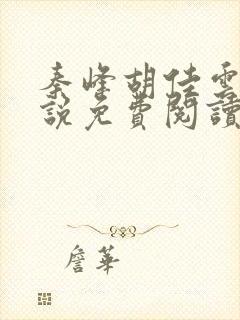 秦峰胡佳雲
說免費閱讀
詹華